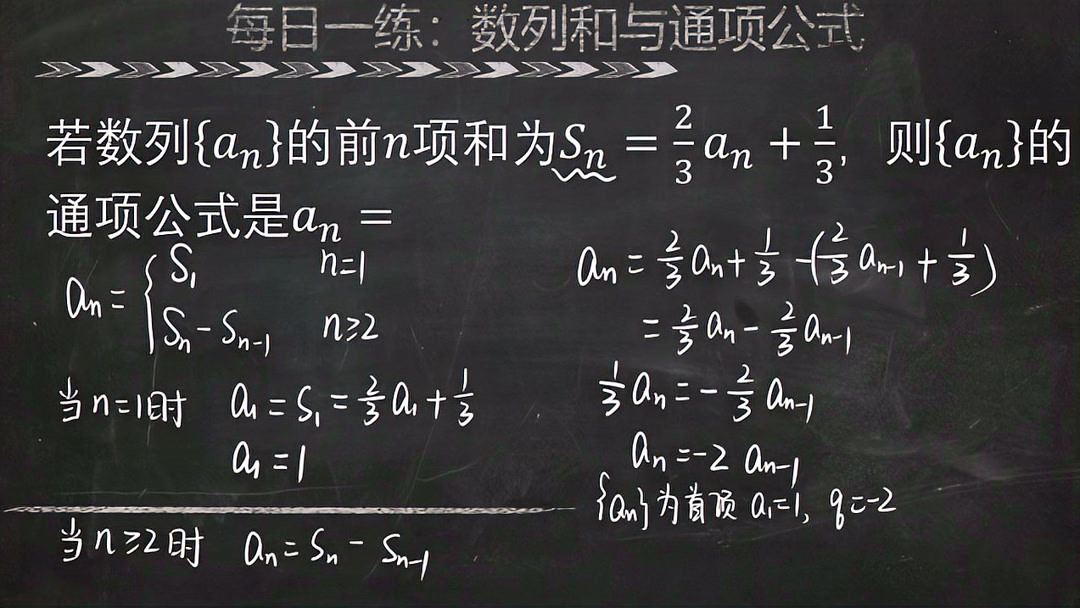 每日一练：数列和与通项公式
若数列{aₙ}的前n项和为Sₙ = 2/3 aₙ + 1/3, 则{aₙ}的
通项公式是aₙ =
aₙ = { S₁ n=1
Sₙ - Sₙ₋₁ n≥2
当n=1时 a₁ = S₁ = 2/3 a₁ + 1/3
a₁ = 1
当n≥2时 aₙ = Sₙ - Sₙ₋₁
aₙ = 2/3 aₙ + 1/3 - (2/3 aₙ₋₁ + 1/3)
= 2/3 aₙ - 2/3 aₙ₋₁
1/3 aₙ = - 2/3 aₙ₋₁
aₙ = -2 aₙ₋₁
{aₙ}为首项 a₁=1, q=-2